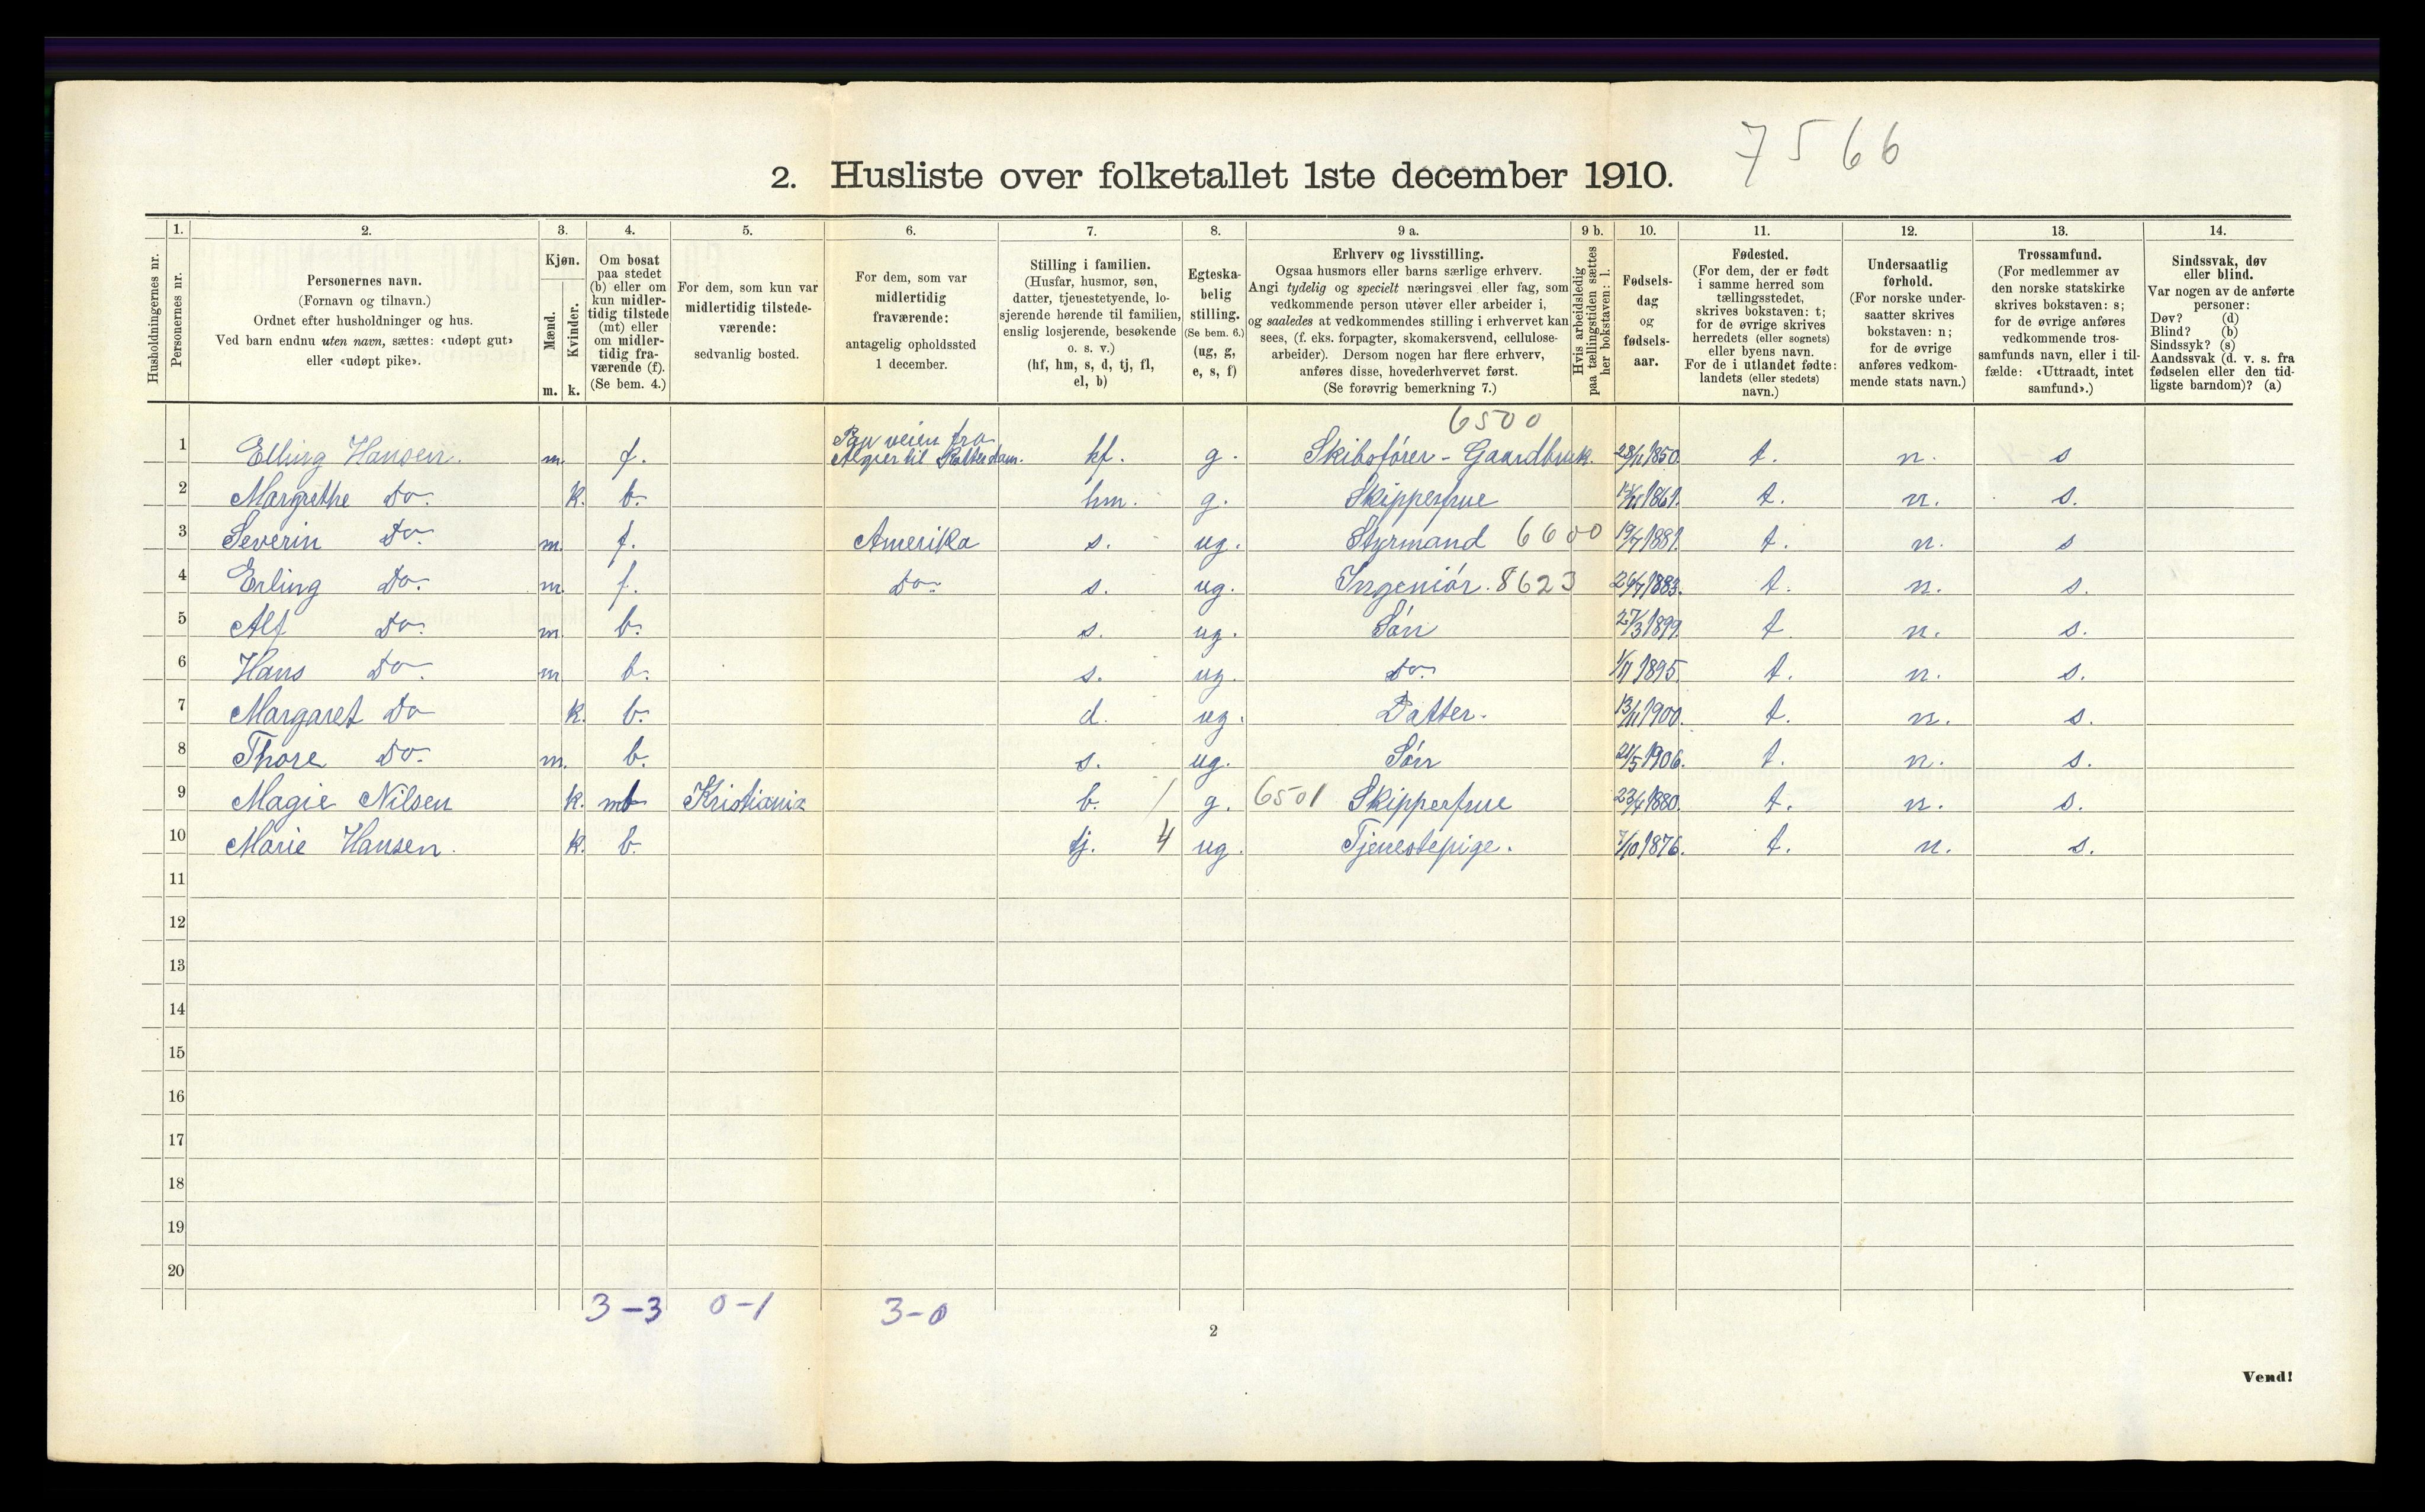 7566
2. Husliste over folketallet 1ste december 1910.
Husholdningernes nr.
1. Personernes nr.
2. Personernes navn.
(Fornavn og tilnavn.)
Ordnet efter husholdninger og hus.
Ved barn endnu uten navn, sættes: «udøpt gut»
eller «udøpt pike».
3. Kjøn.
Mænd. Kvinder.
m. k.
4. Om bosat
paa stedet
(b) eller om
kun midler-
tidig tilstede
(mt) eller
om midler-
tidig fra-
værende (f).
(Se bem. 4.)
5. For dem, som kun var
midlertidig tilstede-
værende:
sedvanlig bosted.
6. For dem, som var
midlertidig
fraværende:
antagelig opholdssted
1 december.
7. Stilling i familien.
(Husfar, husmor, søn,
datter, tjenestetyende, lo-
sjerende hørende til familien,
enslig losjerende, besøkende
o. s. v.)
(hf, hm, s, d, tj, fl,
el, b)
8. Egteska-
belig
stilling.
(Se bem. 6.)
(ug, g,
e, s, f)
9 a. Erhverv og livsstilling.
Ogsaa husmors eller barns særlige erhverv.
Angi tydelig og specielt næringsvei eller fag, som
vedkommende person utøver eller arbeider i,
og saaledes at vedkommendes stilling i erhvervet kan
sees, (f. eks. forpagter, skomakersvend, cellulose-
arbeider). Dersom nogen har flere erhverv,
anføres disse, hovederhvervet først.
(Se forøvrig bemerkning 7.)
9 b. Hvis arbeidsledig
paa tællingstiden sættes
her bokstaven: l.
10. Fødsels-
dag
og
fødsels-
aar.
11. Fødested.
(For dem, der er født
i samme herred som
tællingsstedet,
skrives bokstaven: t;
for de øvrige skrives
herredets (eller sognets)
eller byens navn.
For de i utlandet fødte:
landets (eller stedets)
navn.)
12. Undersaatlig
forhold.
(For norske under-
saatter skrives
bokstaven: n;
for de øvrige
anføres vedkom-
mende stats navn.)
13. Trossamfund.
(For medlemmer av
den norske statskirke
skrives bokstaven: s;
for de øvrige anføres
vedkommende tros-
samfunds navn, eller i til-
fælde: «Uttraadt, intet
samfund».)
14. Sindssvak, døv
eller blind.
Var nogen av de anførte
personer:
Døv? (d)
Blind? (b)
Sindssyk? (s)
Aandssvak (d. v. s. fra
fødselen eller den tid-
ligste barndom)? (a)
6500
Paa veien fra
1 Elling Hansen. m. f. Algier til Rotterdam. hf. g. Skibsfører - Gaardbruk. 28/11 1850. t. n. s
2 Margrethe Do. k. b. hm. g. Skipperfrue 1861. t. n. s.
3 Severin Do. m. f. Amerika s. ug. Styrmand 6600 19/7 1881. t. n. s
4 Erling Do. m. f. Do. s. ug. Ingeniør. 8623 26/7 1883. t. n. s.
5 Alf Do. m. b. s. ug. Søn 27/3 1899. t n. s.
6 Hans Do. m b. s. ug. Do. 1/11 1895. t. n. s.
7 Margaret Do k. b. d. ug. Datter. 13/11 1900. t. n. s.
8 Thore Do. m. b. s. ug. Søn 21/5 1906. t. n. s.
9 Magie Nilsen k. mt Kristiania b. / g. 6501 Skipperfrue 23/4 1880. t. n. s.
10 Marie Hansen. k. b. tj. 4 ug. Tjenestepige. 7/10 1876. t. n. s.
11
12
13
14
15
16
17
18
19
20
3-3 0-1 3-0
2
Vend!